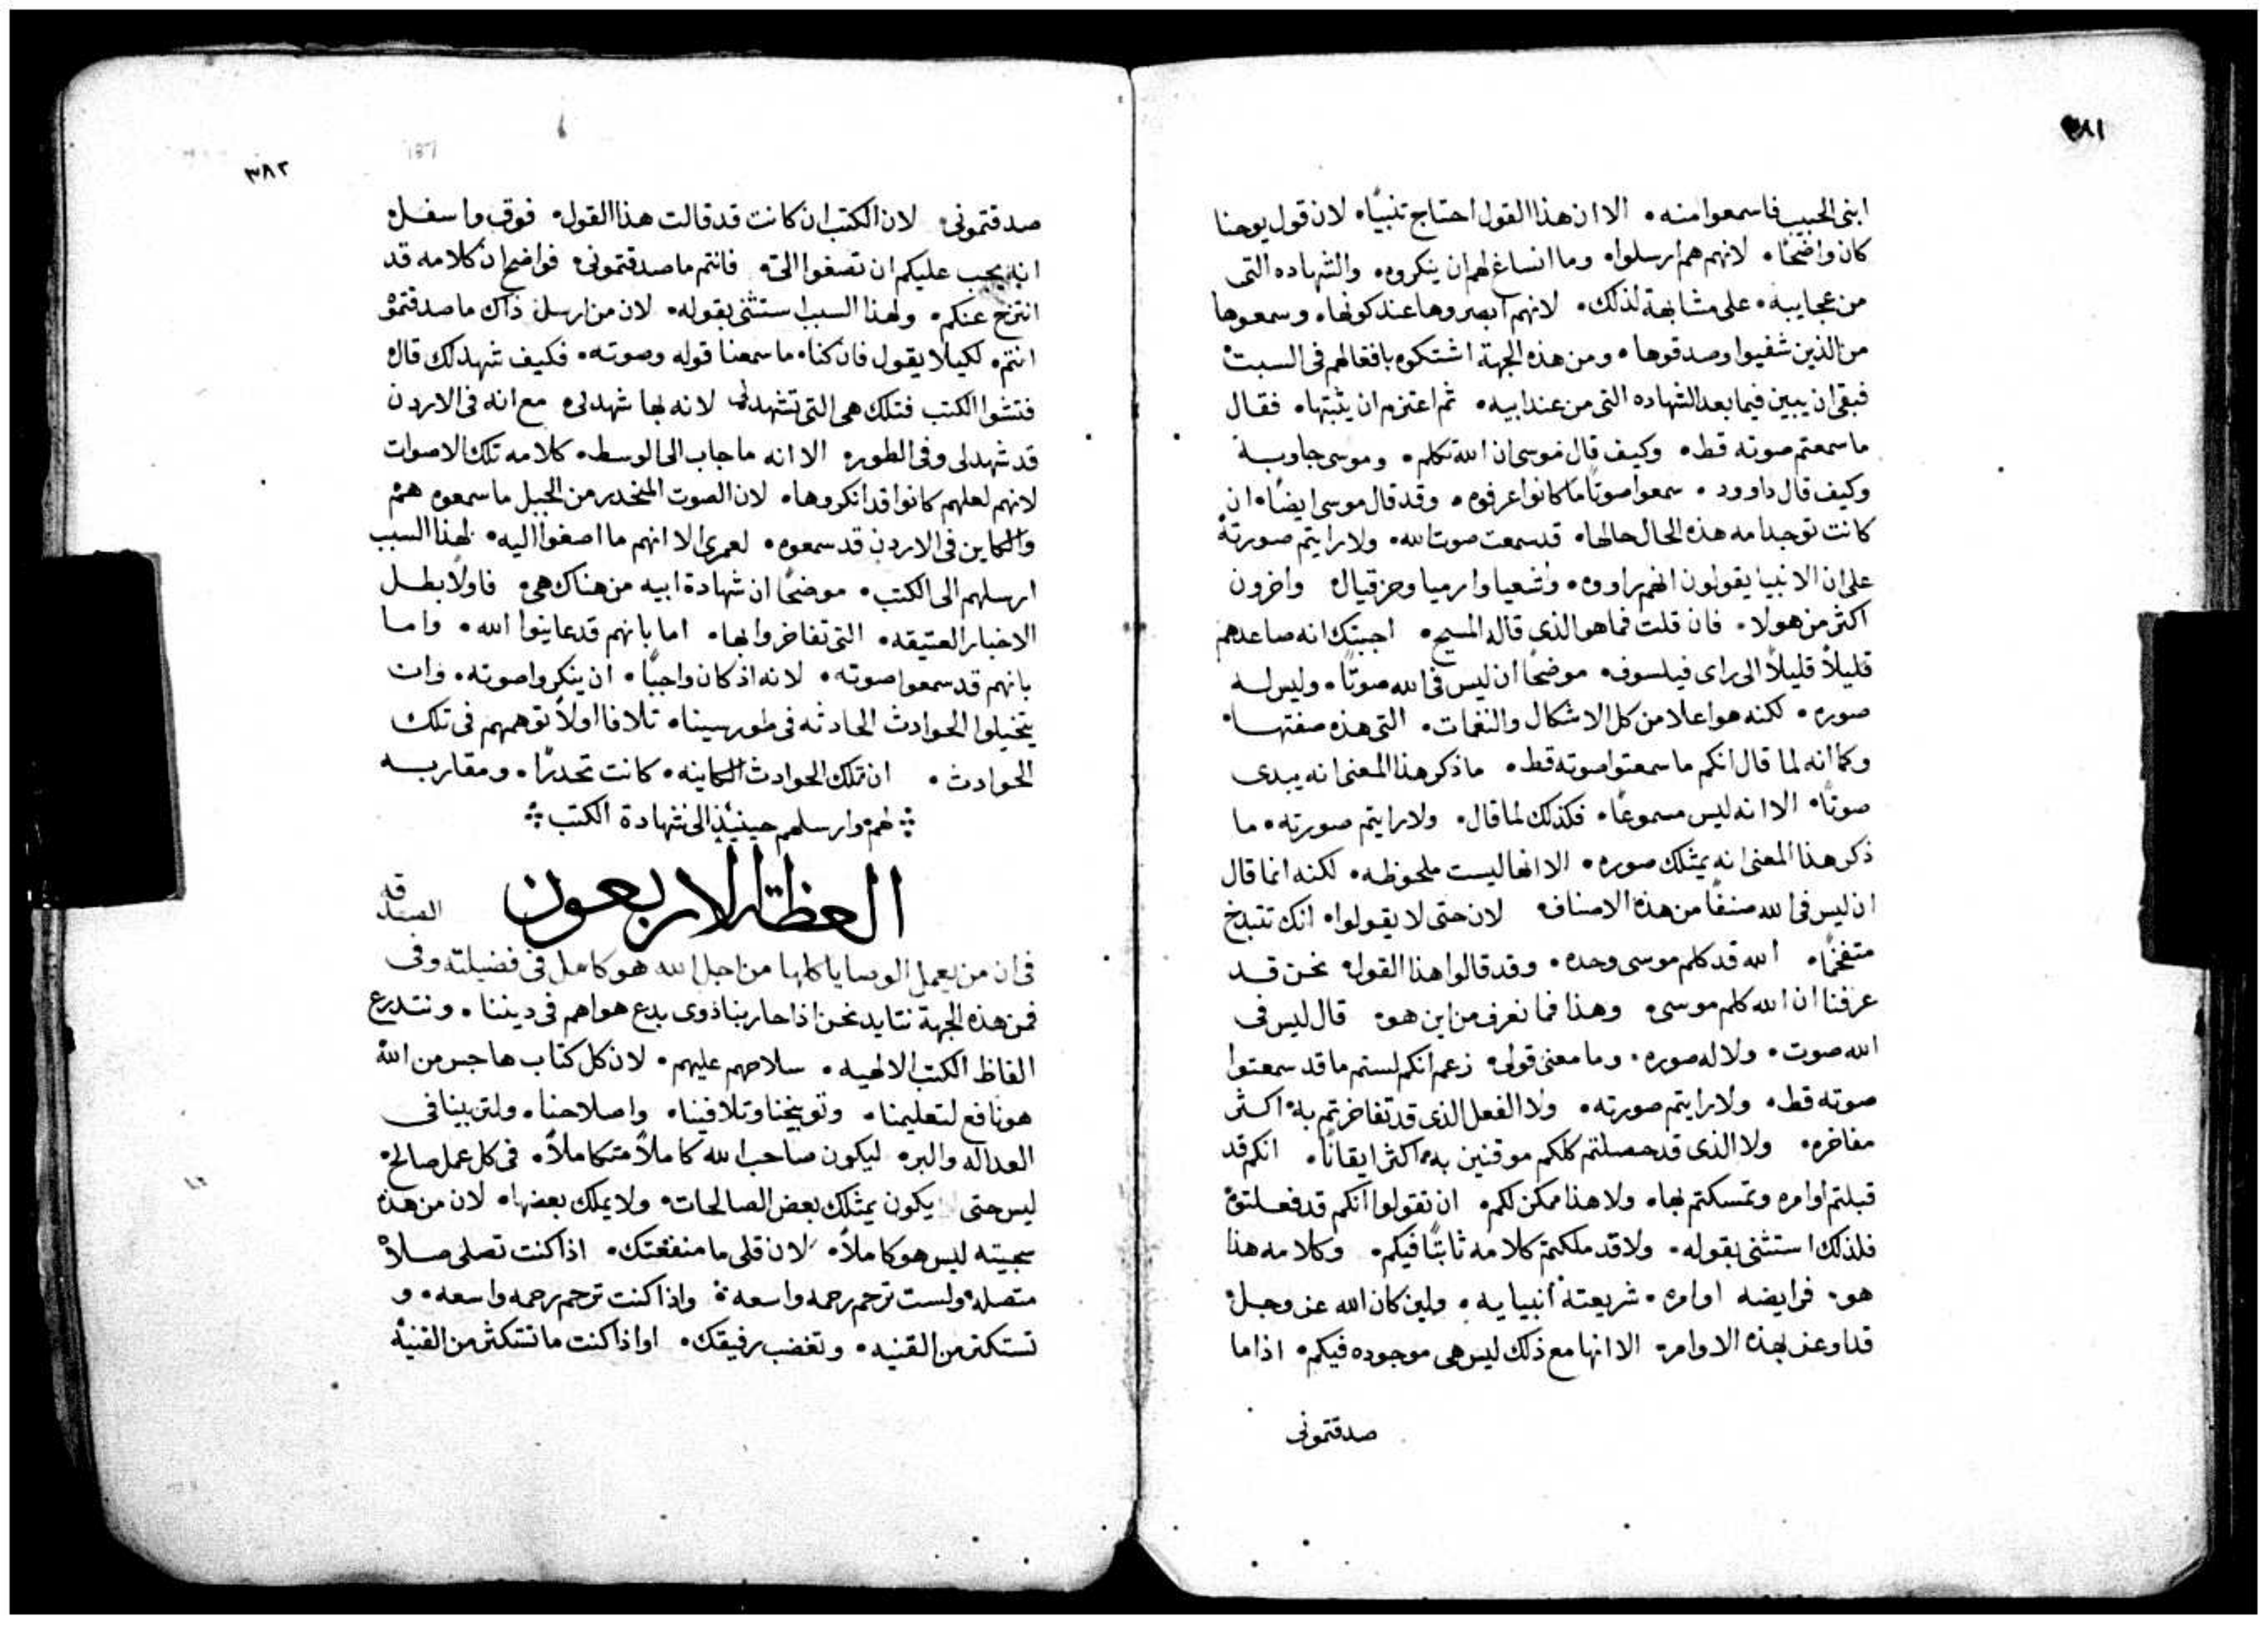 ٣٨١
ابنى الحبيب فاسمعوا منه • الا ان هذا القول احتاج تنبيًا • لان قول يوحنا
كان واضحًا • لانهم هم ارسلوا • وما انساغ لهم ان ينكروه • والشهاده التى
من عجايبه • على مشابهة لذلك • لانهم ابصروها عند كونها • وسمعوها
من الذين شفيوا وصدقوها • ومن هذه الجهة اشتكوه بافعالهم فى السبت
فبقى ان يبين فيما بعد الشهاده التى من عند ابيه • ثم اعتزم ان يثبتها • فقال
ما سمعتم صوته قط • وكيف قال موسى ان الله تكلم • وموسى جاوبه
وكيف قال داوود • سمعوا صوتًا ما كانوا عرفوه • وقد قال موسى ايضًا • ان
كانت توجد امه هذه الحال حالها • قد سمعت صوت الله • ولا رايتم صورته
على ان الانبيا يقولون انهم راووه • واشعيا وارميا وحزقيال واخرون
اكثر من هولا • فان قلت فما هو الذى قاله المسيح • اجبتك انه صاعدهم
قليلاً قليلاً الى راى فيلسوف • موضحًا ان ليس فى الله صوتًا • وليس له
صوره • لكنه هو اعلا من كل الاشكال والنغمات • التى هذه صفتها •
وكما انه لما قال انكم ما سمعتوا صوته قط • ما ذكر هذا المعنى انه يبدى
صوتًا • الا انه ليس مسموعًا • فكذلك لما قال • ولا رايتم صورته • ما
ذكر هذا المعنى انه يمتلك صوره • الا انها ليست ملحوظه • لكنه انما قال
ان ليس فى الله صنفًا من هذه الاصناف لان حتى لا يقولوا • انك تتبذخ
متفخمًا • الله قد كلم موسى وحده • وقد قالوا هذا القول • نحن قد
عرفنا ان الله كلم موسى • وهذا فما نعرف من اين هو • قال ليس فى
الله صوت • ولا له صوره • وما معنى قولى • زعم انكم لستم ما قد سمعتوا
صوته قط • ولا رايتم صورته • ولا الفعل الذى قد تفاخرتم به • اكثر
مفاخره • ولا الذى قد حصلتم كلكم موقنين به • اكثر ايقانًا • انكم قد
قبلتم اوامره وتمسكتم بها • ولا هذا ممكن لكم • ان تقولوا انكم قد فعلتوه
فلذلك استثنى بقوله • ولا قد ملكتم كلامه ثابتًا فيكم • وكلامه هذا
هو • فرايضه اوامره • شريعته انبيايه • ولين كان الله عز وجل
قد اوعز بهذه الاوامر • الا انها مع ذلك ليس هى موجوده فيكم • اذا ما
صدقتمونى
٣٨٢
صدقتمونى • لان الكتب ان كانت قد قالت هذا القول • فوق واسفل
انه يجب عليكم ان تصغوا الىّ • فانتم ما صدقتمونى • فواضح ان كلامه قد
انتزح عنكم • ولهذا السبب استثنى بقوله • لان من ارسل ذاك ما صدقتموه
انتم • لكيلا يقول فان كنا • ما سمعنا قوله وصوته • فكيف شهد لك قال
فتشوا الكتب فتلك هى التى تشهد لى لانه بها شهد لى • مع انه فى الاردن
قد شهد لى وفى الطور • الا انه ما جاب الى الوسط • كلامه تلك الاصوات
لانهم لعلهم كانوا قد انكروها • لان الصوت المنحدر من الجبل ما سمعوه هم
والكاين فى الاردن قد سمعوه • لعمرى الا انهم ما اصغوا اليه • لهذا السبب
ارسلهم الى الكتب • موضحًا ان شهادة ابيه من هناك هى • فاولاً بطل
الاخبار العتيقه • التى تفاخروا بها • اما بانهم قد عاينوا الله • واما
بانهم قد سمعوا صوته • لانه اذ كان واجبًا • ان ينكروا صوته • وان
يتخيلوا الحوادث الحادثه فى طور سينا • تلافا اولاً توهمهم فى تلك
الحوادث • ان تلك الحوادث الكاينه • كانت تحدرًا • ومقاربه
لهم وارسلهم حينيذٍ الى شهادة الكتب
العظة الاربعون
فى ان من يعمل الوصايا كلها من اجل الله هو كامل فى فضيلته وفى الصدقه
فمن هذه الجهة نتايد نحن اذا حاربنا ذوى بدع هواهم فى ديننا • ونتدرع
الفاظ الكتب الالهيه • سلاحهم عليهم • لان كل كتاب هاجس من الله
هو نافع لتعليمنا • وتوبيخنا وتلافينا • واصلاحنا • ولتربينا فى
العداله والبر • ليكون صاحب الله كاملاً متكاملاً • فى كل عمل صالح •
ليس حتى يكون يمتلك بعض الصالحات • ولا يملك بعضها • لان من هذه
سجيته ليس هو كاملاً • لان قلى ما منفعتك • اذا كنت تصلى صلاه
متصله • ولست ترحم رحمه واسعه • واذا كنت ترحم رحمه واسعه • و
تستكثر من القنيه • وتغضب رفيقك • او اذا كنت ما تستكثر من القنيه